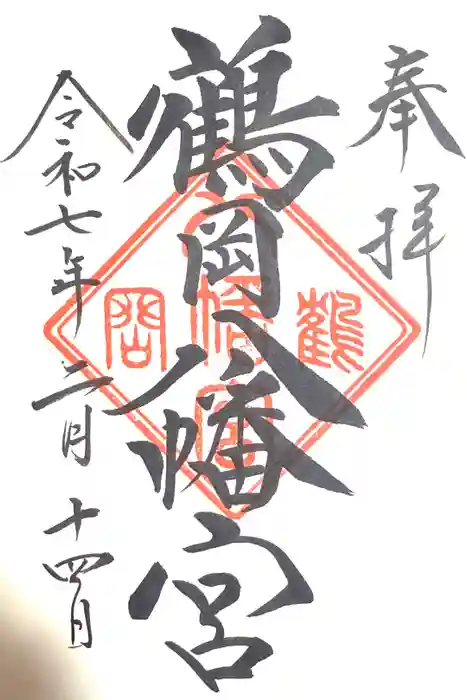 奉拝
鶴岡八幡宮
鶴岡
八幡宮
令和七年二月十四日